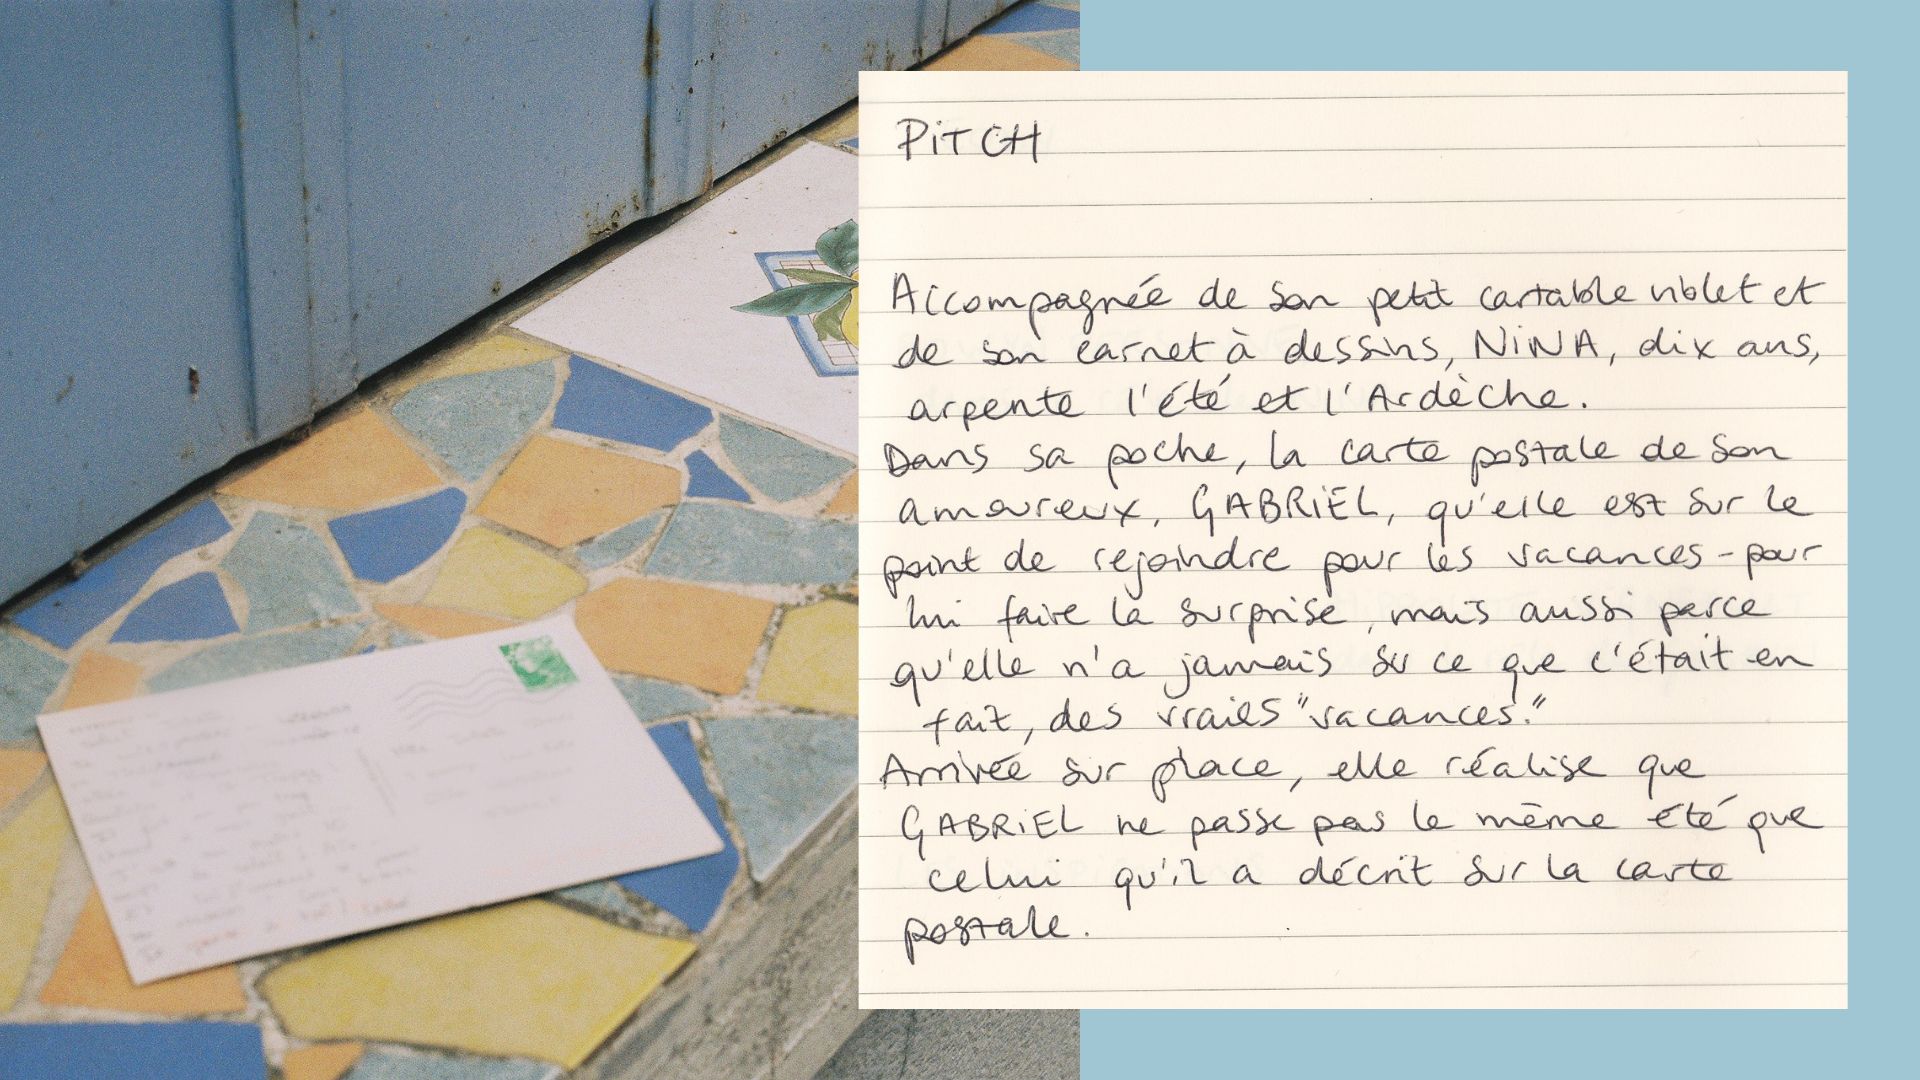 PiTCH
Accompagnée de son petit cartable violet et
de son carnet à dessins, NiNA, dix ans,
arpente l'été et l'Ardèche.
Dans sa poche, la carte postale de son
amoureux, GABRiEL, qu'elle est sur le
point de rejoindre pour les vacances - pour
lui faire la surprise, mais aussi parce
qu'elle n'a jamais su ce que c'était en
fait, des vraies "vacances."
Arrivée sur place, elle réalise que
GABRiEL ne passe pas le même été que
celui qu'il a décrit sur la carte
postale.